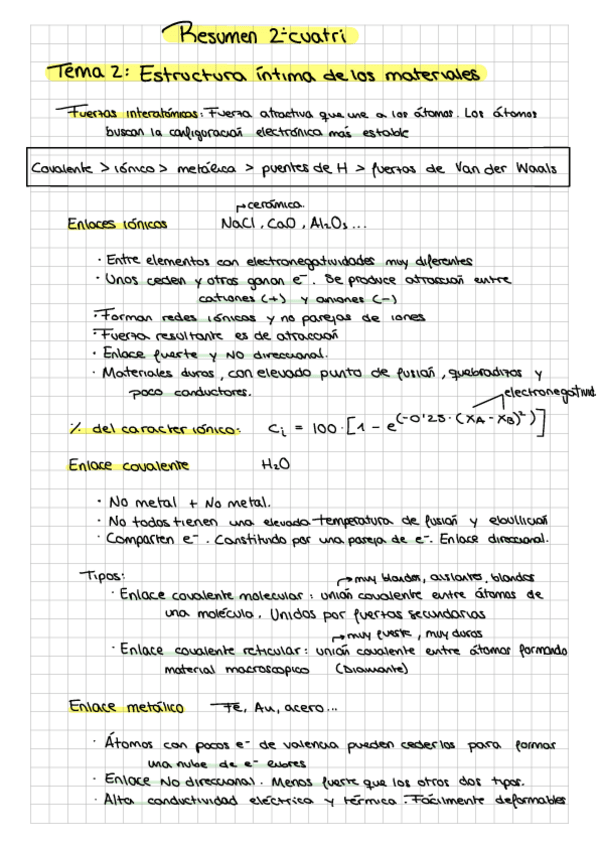 Resumen 2ºcuatri
Tema 2: Estructura íntima de los materiales
Fuerzas interatómicas: Fuerza atractiva que une a los átomos. Los átomos
buscan la configuración electrónica más estable
Covalente > iónico > metálica > puentes de H > fuerzas de Van der Waals
→cerámica.
Enlaces iónicos NaCl, CaO, Al₂O₃...
· Entre elementos con electronegatividades muy diferentes
· Unos ceden y otros ganan e⁻. Se produce atracción entre
cationes (+) y aniones (-)
· Forman redes iónicas y no parejas de iones
· Fuerza resultante es de atracción
· Enlace fuerte y NO direccional.
· Materiales duros, con elevado punto de fusión, quebradizos y
poco conductores.
electronegativid
% del caracter iónico: Ci = 100·[1 - e^(-0'25·(XA - XB)²)]
Enlace covalente H₂O
· No metal + No metal.
· No todos tienen una elevada temperatura de fusión y ebullición
· Comparten e⁻. Constituido por una pareja de e⁻. Enlace direccional.
Tipos:
→muy blandos, aislantes, blandos
· Enlace covalente molecular: unión covalente entre átomos de
una molécula. Unidos por fuerzas secundarias
→muy fuerte, muy duros
· Enlace covalente reticular: unión covalente entre átomos formando
material macroscopico (Diamante)
Enlace metálico Fe, Au, acero...
· Átomos con pocos e⁻ de valencia pueden cederlos para formar
una nube de e⁻ libres
· Enlace No direccional. Menos fuerte que los otros dos tipos.
· Alta conductividad eléctrica y térmica. Fácilmente deformables